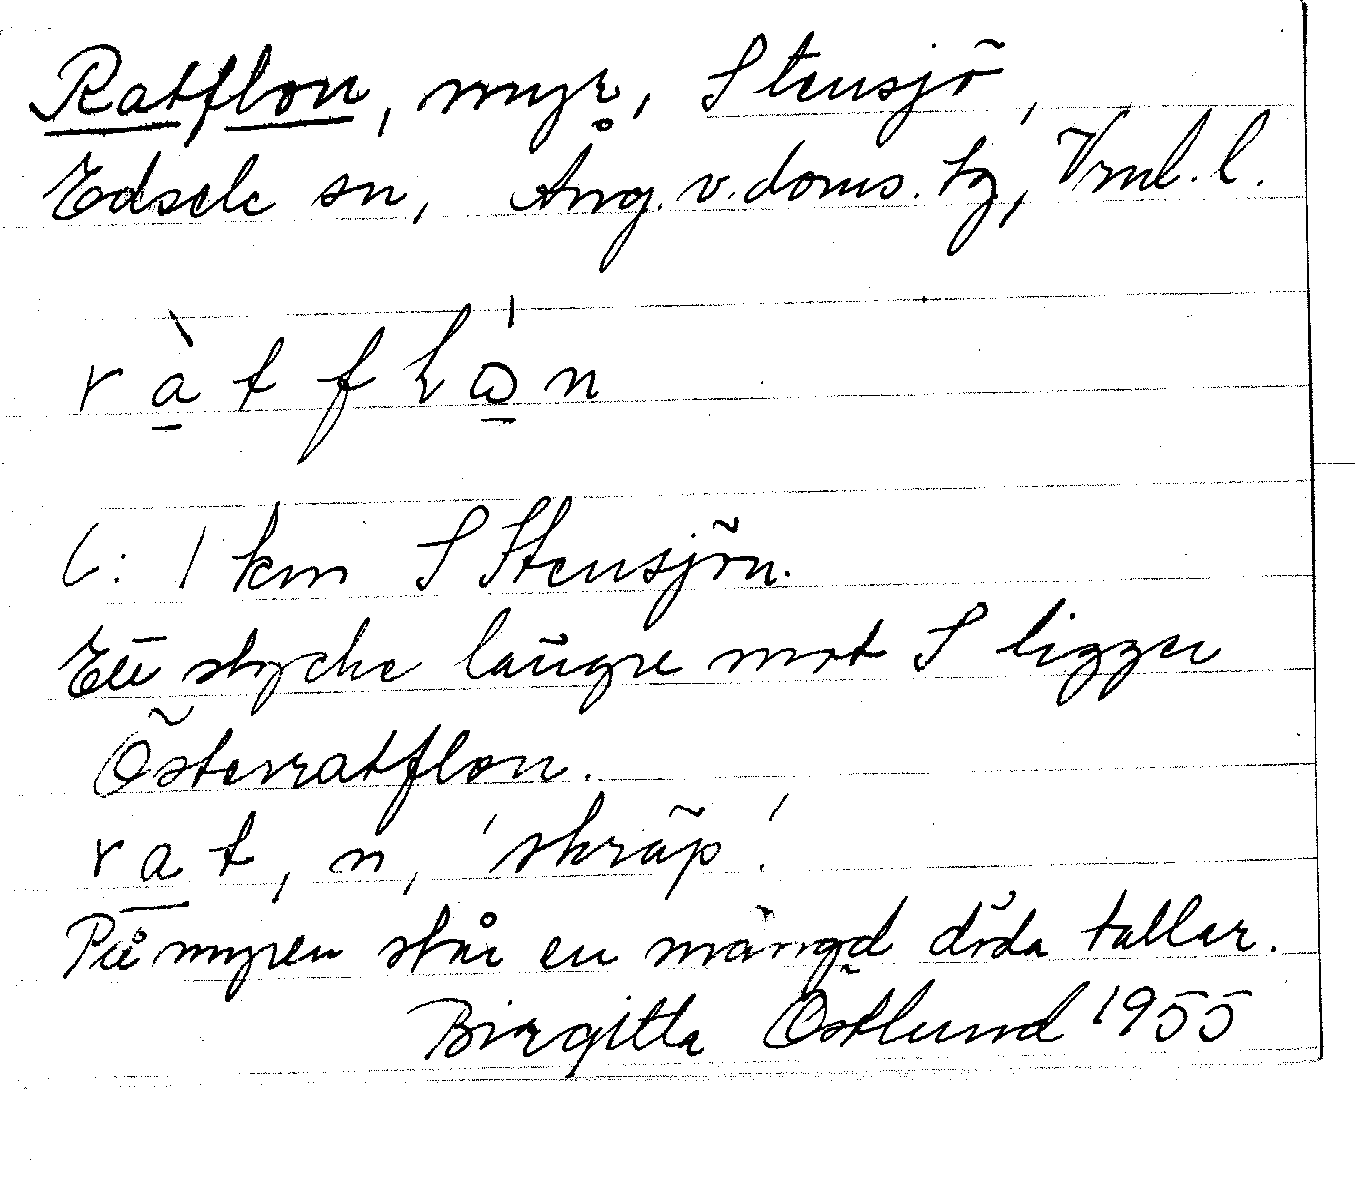 Ratflon, myr, Stensjö,
Edsele sn, Ång. v. doms. tg, Vrnl. l.
r à t f l ɷ́ n
L: 1 km S Stensjön.
Ett stycke längre mot S ligger
Österratflon.
r a t, n, 'skräp'.
På myren står en mängd döda tallar.
Birgitta Östlund 1955